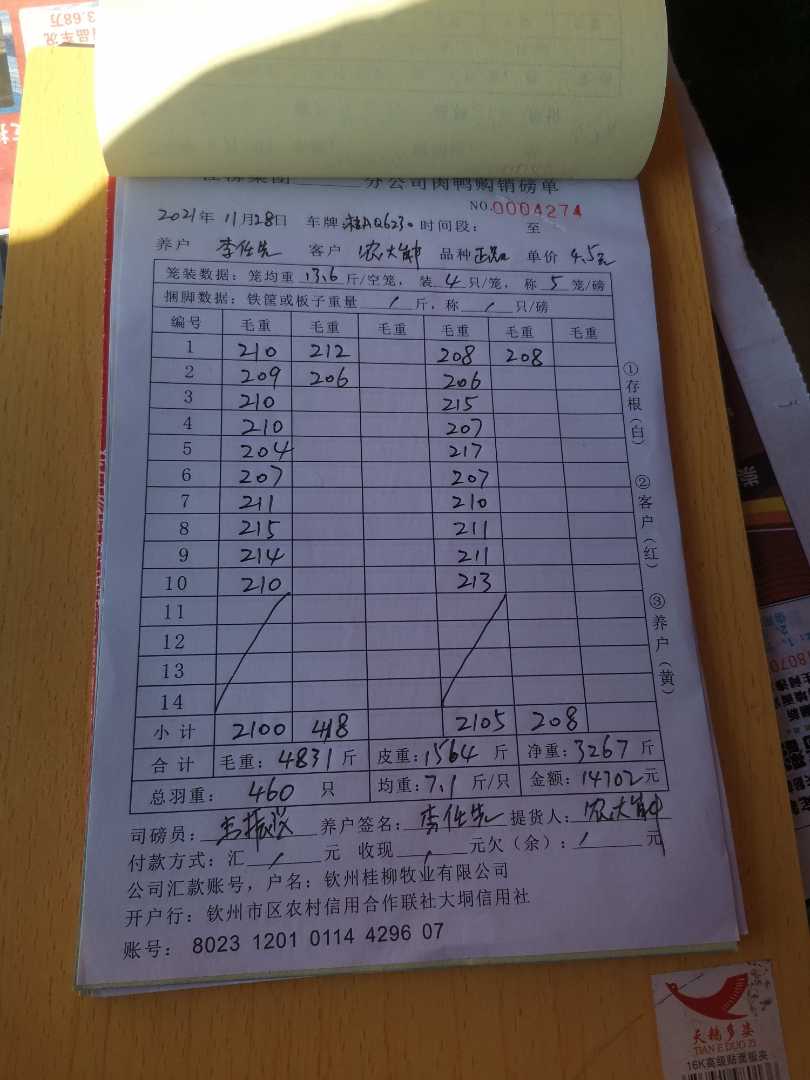 3.68万
品车况
桂柳集团______分公司肉鸭购销磅单
NO.0004274
2021年 11月28日 车牌 桂AQ6230 时间段： 至
养户 李任先 客户 农大帅 品种 正品 单价 4.5元
笼装数据：笼均重 13.6 斤/空笼，装 4 只/笼，称 5 笼/磅
捆脚数据：铁筐或板子重量 / 斤，称 / 只/磅
编号 毛重 毛重 毛重 毛重 毛重 毛重
1 210 212 208 208
2 209 206 206
3 210 215
4 210 207
5 204 217
6 207 207
7 211 210
8 215 211
9 214 211
10 210 213
11
12
13
14
小计 2100 418 2105 208
合计 毛重：4831斤 皮重：1564斤 净重：3267斤
总羽重： 460 只 均重：7.1斤/只 金额：14702元
司磅员： 养户签名：李任先 提货人：农大帅
付款方式：汇 / 元 收现 / 元欠（余）： / 元
公司汇款账号，户名：钦州桂柳牧业有限公司
开户行：钦州市区农村信用合作联社大垌信用社
账号： 8023 1201 0114 4296 07
①存根（白）
②客户（红）
③养户（黄）
天鹅多姿
TIAN E DUO ZI
16K高级贴面板夹